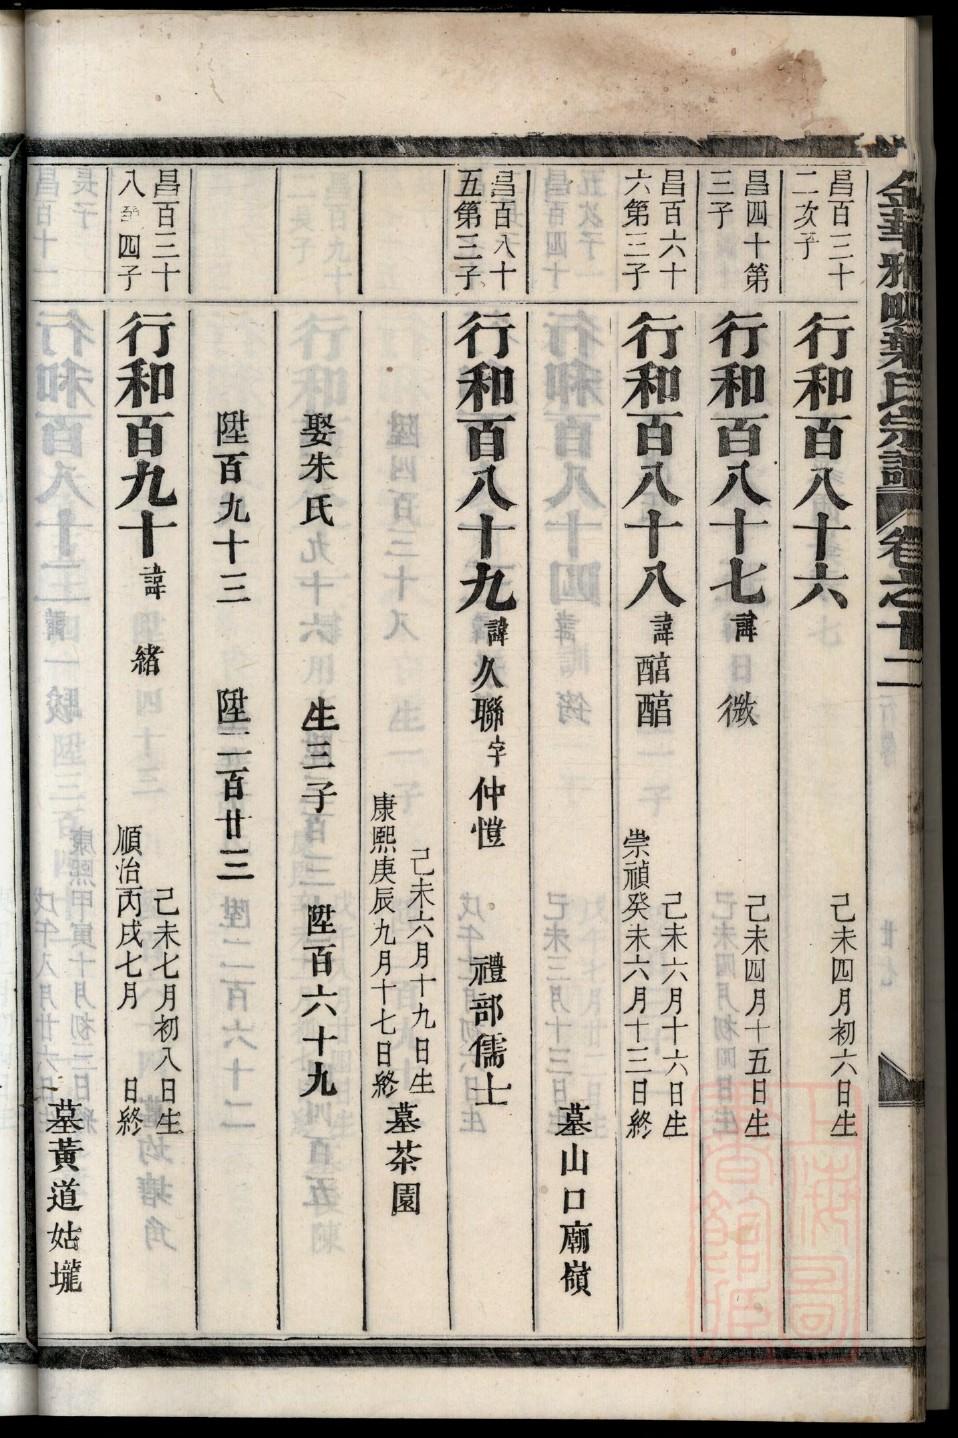 金華雅畈葉氏宗譜 卷之十二
昌百三十
二次子
行和百八十六
己未四月初六日生
昌四十第
三子
行和百八十七 諱 微
己未四月十五日生
昌百六十
六第三子
行和百八十八 諱 醕醕
己未六月十六日生
崇禎癸未六月十三日終
墓山口廟嶺
昌百八十
五第三子
行和百八十九 諱久聯 字仲愷 禮部儒士
己未六月十九日生
康熙庚辰九月十七日終
墓茶園
娶朱氏 生三子 陞百六十九
陞百九十三 陞二百廿三
昌百三十
八第四子
行和百九十 諱 緒
己未七月初八日生
順治丙戌七月 日終
墓黃道姑壠